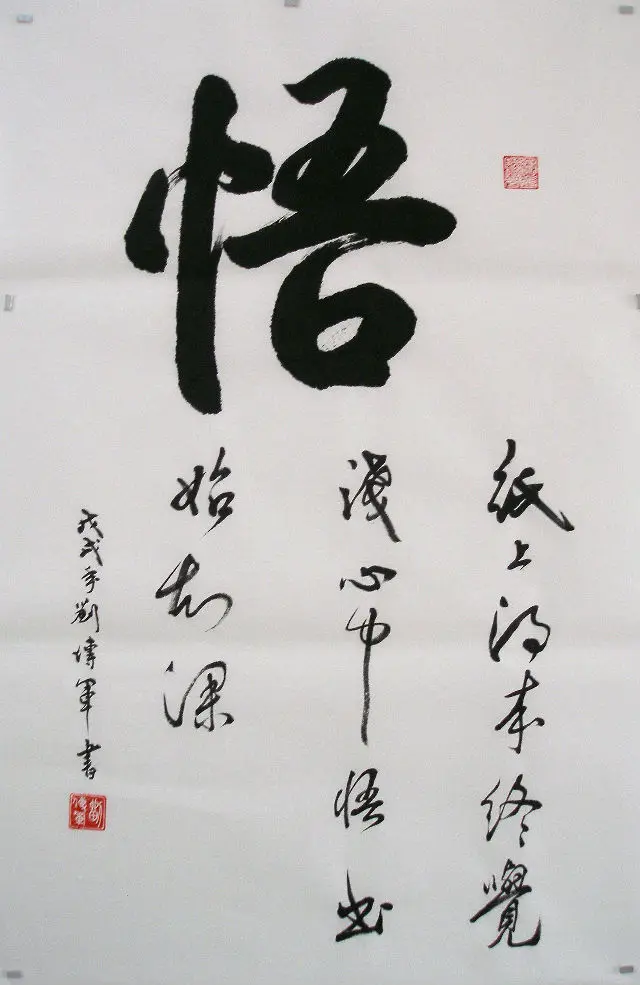 悟
紙上得来終覺
淺心中悟出
始知深
戊戌年劉博軍書